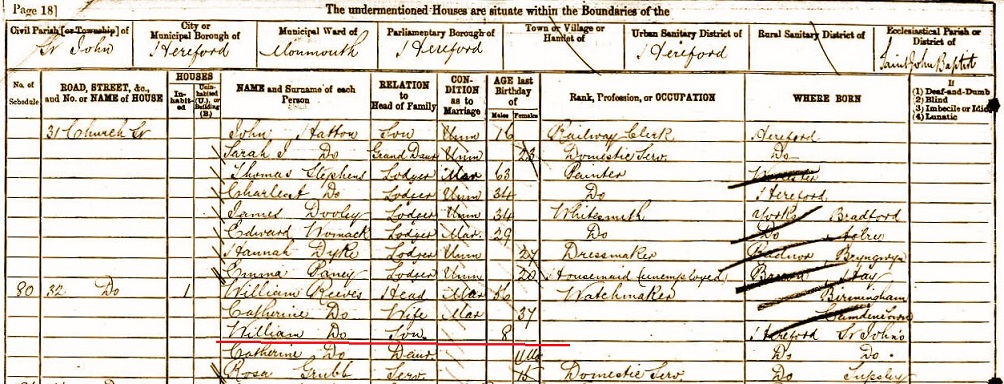 Page 18] The undermentioned Houses are situate within the Boundaries of the
Civil Parish [or Township] of City or Municipal Borough of Municipal Ward of Parliamentary Borough of Town or Village or Hamlet of Urban Sanitary District of Rural Sanitary District of Ecclesiastical Parish or District of
St John Hereford Monmouth Hereford Hereford Saint John Baptist
No. of Schedule ROAD, STREET, &c., and No. or NAME of HOUSE HOUSES Inhabited Uninhabited (U.), or Building (B.) NAME and Surname of each Person RELATION to Head of Family CONDITION as to Marriage AGE last Birthday of Males Females Rank, Profession, or OCCUPATION WHERE BORN If (1) Deaf-and-Dumb (2) Blind (3) Imbecile or Idiot (4) Lunatic
31 Church St John Hatton Son Unm 16 Railway Clerk Hereford
Sarah J Do Grand Daur Unm 23 Domestic Serv. Do
Thomas Stephens Lodger Mar 63 Painter Worcester
Do Lodger Unm 34 Do Hereford
James Dooley Lodger Unm 34 Whitesmith Yorks Bradford
Edward Womack Lodger Mar. 29 Do Do
Hannah Dyke Lodger Unm 27 Dressmaker Radnor
Emma Lodger Unm 20 Housemaid (unemployed) Hay
80 32 Do 1 William Reeves Head Mar Watchmaker Birmingham
Catherine Do Wife Mar 37 Camden Town
William Do Son 8 Hereford St John's
Catherine Do Daur Do Do.
Rosa Grubb Serv. 15 Domestic Serv. Do Tupsley